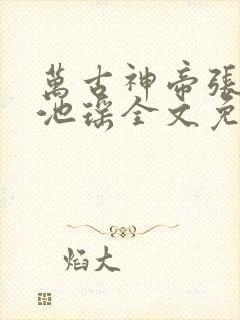 萬古神帝張
池瑤全文免
焰大